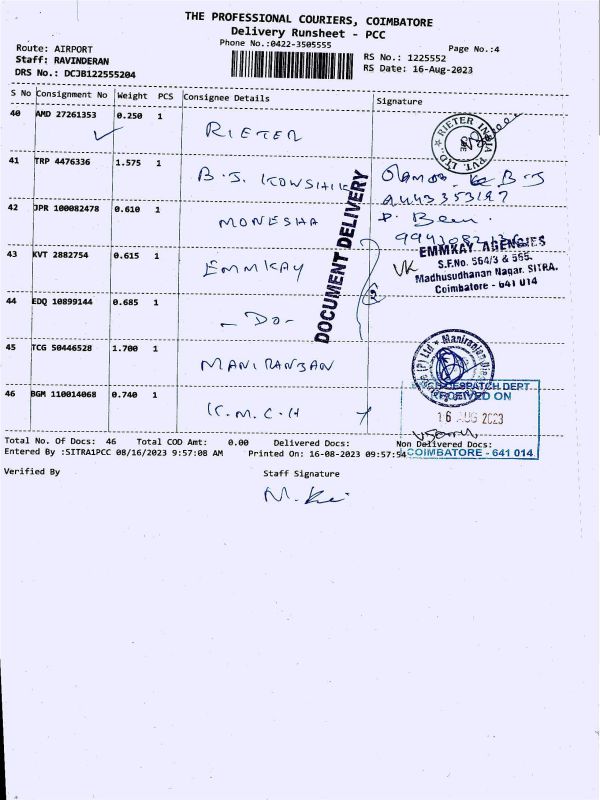 THE PROFESSIONAL COURIERS, COIMBATORE
Delivery Runsheet - PCC
Phone No.:0422-3505555
Page No.:4
Route: AIRPORT
Staff: RAVINDERAN
DRS No.: DCJB122555204
RS No.: 1225552
RS Date: 16-Aug-2023
S No Consignment No Weight PCS Consignee Details Signature
40 AMD 27261353 0.250 1 RIETER
RIETER INDIA PVT. LTD.
41 TRP 4476336 1.575 1 B.J. KOWSHIK
9443353197
42 JPR 100082478 0.610 1 MONESHA
DOCUMENT DELIVERY
43 KVT 2882754 0.615 1 EMMKAY
EMMKAY AGENCIES
S.F.No. 564/3 & 565.
Madhusudhanan Nagar. SITRA.
Coimbatore - 641 014
VK
44 EDQ 10899144 0.685 1 - DO -
45 TCG 50446528 1.700 1 MANIRANJAN
46 BGM 110014068 0.740 1 K.M.C.H
DESPATCH DEPT
RECEIVED ON
16 AUG 2023
COIMBATORE - 641 014
Total No. Of Docs: 46 Total COD Amt: 0.00 Delivered Docs: Non Delivered Docs:
Entered By :SITRA1PCC 08/16/2023 9:57:08 AM Printed On: 16-08-2023 09:57:54
Verified By Staff Signature